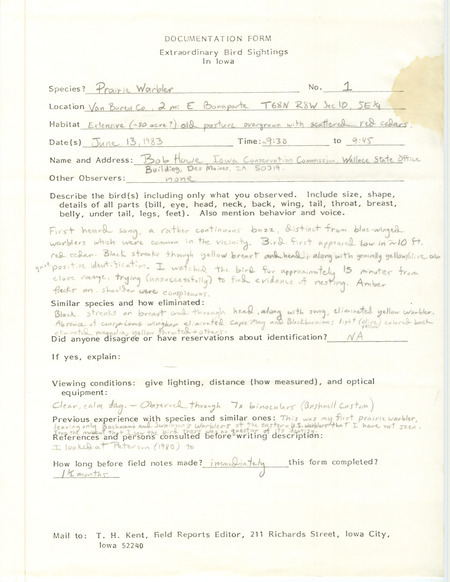 DOCUMENTATION FORM
Extraordinary Bird Sightings
In Iowa
Species? Prairie Warbler No. 1
Location Van Buren Co., 2 mi E Bonaparte T68N R8W Sec 10, SE¼
Habitat Extensive (~80 acre?) old pasture overgrown with scattered red cedars.
Date(s) June 13, 1983 Time: ~9:30 to 9:45
Name and Address: Bob Howe Iowa Conservation Commission, Wallace State Office
Building, Des Moines, IA 50319.
Other Observers: none
Describe the bird(s) including only what you observed. Include size, shape,
details of all parts (bill, eye, head, neck, back, wing, tail, throat, breast,
belly, under tail, legs, feet). Also mention behavior and voice.
First heard song, a rather continuous buzz, distinct from blue-winged
warblers which were common in the vicinity. Bird first appeared low in ~10 ft.
red cedar. Black streaks through yellow breast and head, along with generally yellow/olive color
gave positive identification. I watched the bird for approximately 15 minutes from
close range, trying (unsuccessfully) to find evidence of nesting. Amber
flecks on shoulder were conspicuous.
Similar species and how eliminated:
Black streaks on breast and through head, along with song, eliminated yellow warbler.
Absence of conspicuous wingbar eliminated Cape May and Blackburnian; light (olive) colored back
eliminated magnolia, yellow throated + others.
Did anyone disagree or have reservations about identification? NA
If yes, explain:
Viewing conditions: give lighting, distance (how measured), and optical
equipment:
Clear, calm day. — Observed through 7x binoculars (Bushnell Custom)
Previous experience with species and similar ones: This was my first prairie warbler,
leaving only Bachmans and Swainson's Warblers of the eastern U.S. warblers that I have not seen.
From the moment that I saw the bird there was no question of its identity.
References and persons consulted before writing description:
I looked at Peterson (1980) to
How long before field notes made? immediately this form completed?
1½ months
Mail to: T. H. Kent, Field Reports Editor, 211 Richards Street, Iowa City,
Iowa 52240